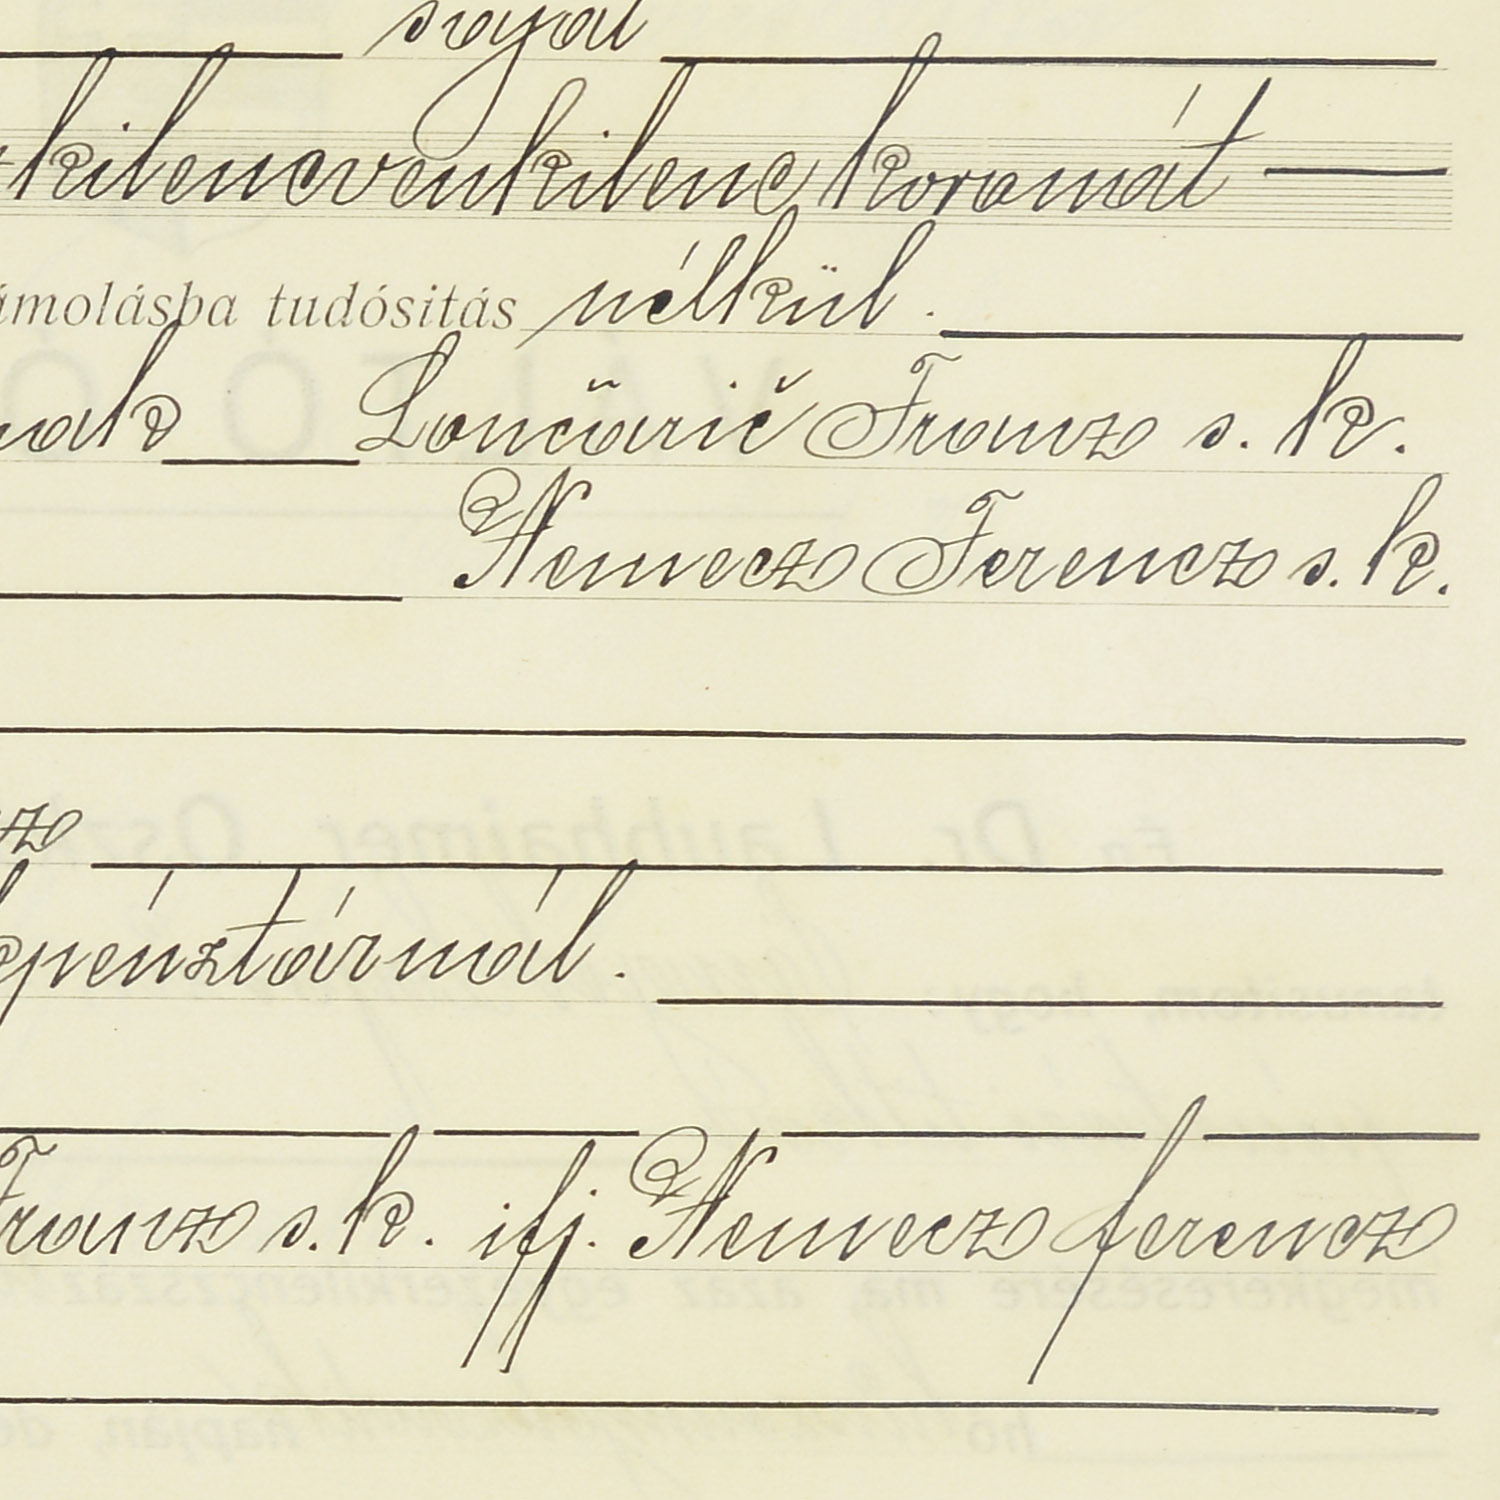 saját
kilencvenkilenc koronát
ámolásba tudósitás nélkül.
nak Lončarič Franz s. k.
Nemecz Ferencz s. k.
cz
pénztárnál.
Franz s. k. ifj. Nemecz ferencz